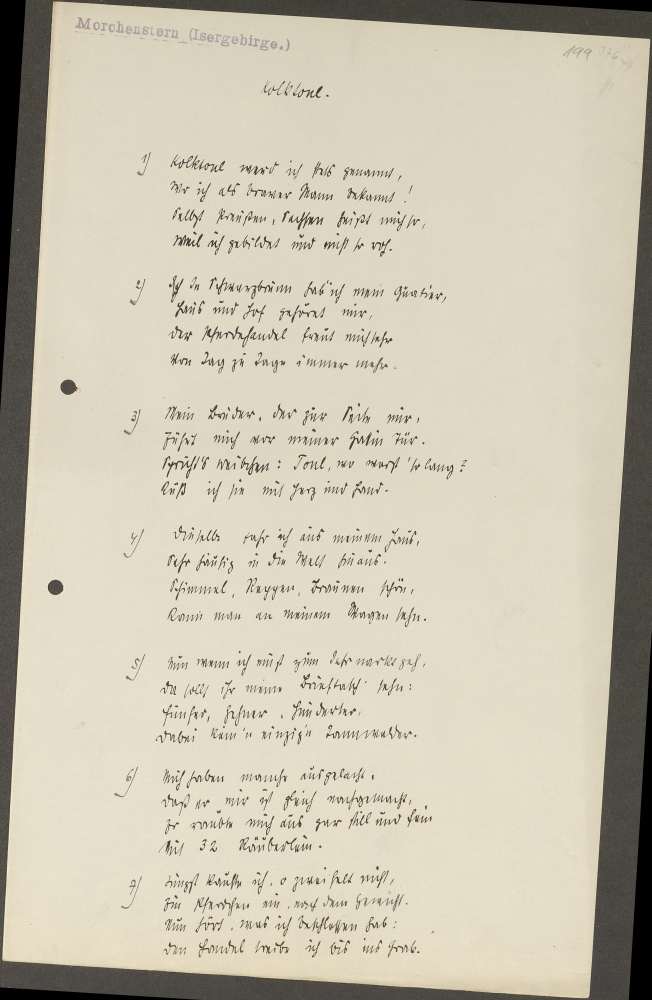 Morchenstern (Isergebirge.)
199
Kolktonl.
1) Kolktonl werd ich stets genannt,
Wo ich als braver Mann bekannt!
Selbst Preußen, Sachsen heißt mich so,
Weil ich gebildet und nicht so roh.
2) In Schwarzbrunn hab' ich mein Quatier,
Haus und Hof gehöret mir,
Der Pferdehandel freut mich sehr
Von Tag zu Tage immer mehr.
3) Mein Bruder, der zur Seite mir,
Führt mich vor meiner Gatin Tür.
Spricht's Weibchen: Tonl, wo warst 'so lang?
Küß ich sie mit Herz und Hand.
4) fahr ich aus meinem Haus,
Sehr häufig in die Welt hinaus.
Schimmel, Rappen, Braunen schön,
Kann man an meinem Wagen sehn.
5) Nun wenn ich mich zum Jahrmarkt geh,
Da sollt ihr meine Brieftasch' sehn:
Fünfer, Zehner, Hunderter,
Dabei kein'n einzig'n Tannwalder.
6) Mich haben manche ausgelacht,
Daß er mir ist gleich nachgemacht,
Er raubte mich aus gar still und fein
Mit 32 Räuberlein.
7) Jüngst kaufte ich, o zweifelt nicht,
Ein Pferdchen ein, nach dem Gewicht.
Nun hört, was ich beschlossen hab:
Den Handel treibe ich bis ins Grab.